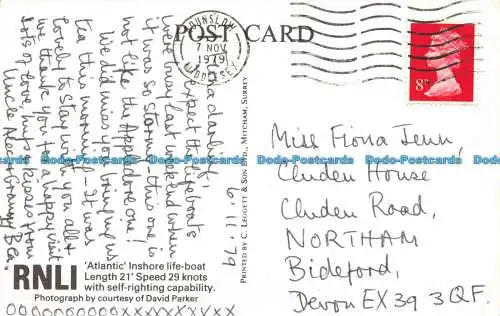 POST CARD
HOUNSLOW
7 NOV
1979
MIDDLESEX
8P
6.11.79
darling,
expect the lifeboats
were busy last weekend when
it was so stormy - this one is
not like the Appledore one!
We did miss you bringing us
tea this morning! It was
lovely to stay with you all &
we thank you for a happy visit.
Lots of love, hugs & kisses from
Uncle Alec & Granny Bea.
OOOOOOOOOOXXXXXXXXXX
RNLI
'Atlantic' Inshore life-boat
Length 21' Speed 29 knots
with self-righting capability.
Photograph by courtesy of David Parker
PRINTED BY C. LEGGETT & SON LTD., MITCHAM, SURREY
Miss Fiona Jenn,
Cluden House
Cluden Road,
NORTHAM
Bideford,
Devon EX39 3QF.
Dodo-Postcards